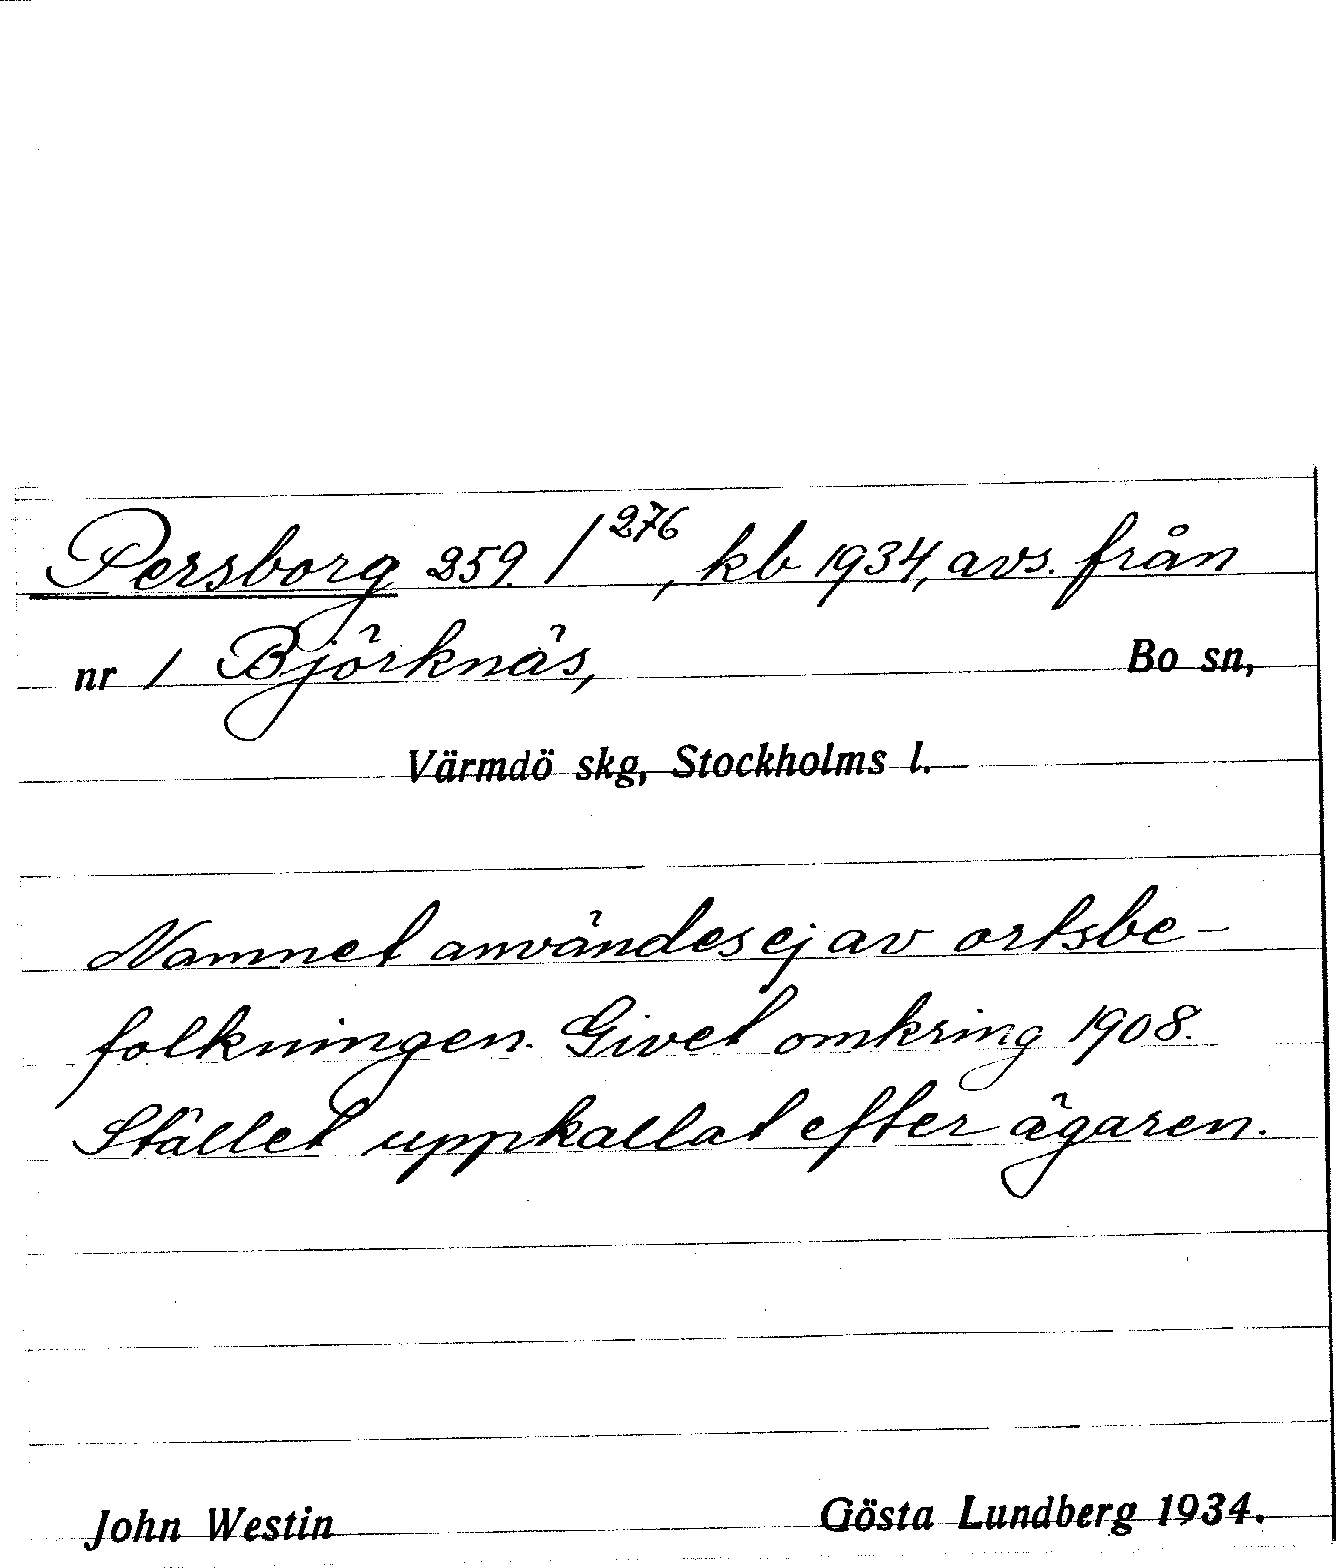 Persborg 259. 1²⁷⁶, kb 1934, avs. från
nr 1 Björknäs, Bo sn,
Värmdö skg, Stockholms l.
Namnet användes ej av ortsbe-
folkningen. Givet omkring 1908.
Stället uppkallat efter ägaren.
John Westin Gösta Lundberg 1934.